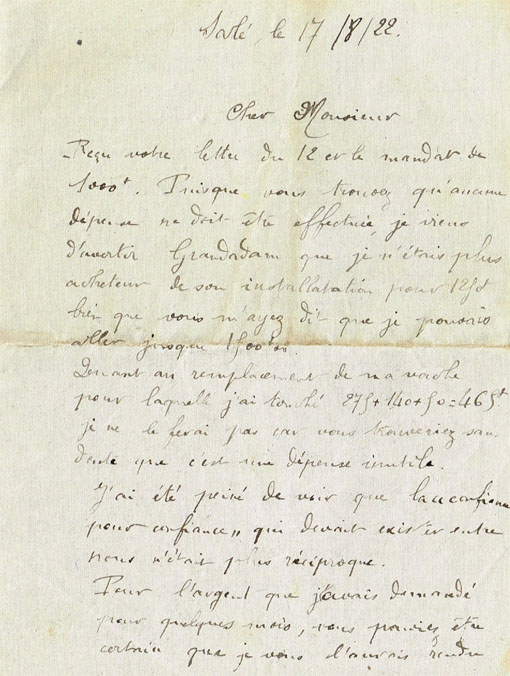 le 17/8/22.
Cher Monsieur
Reçu votre lettre du 12 et le mandat de
1000f. Puisque vous trouvez qu'aucune
dépense ne doit être effectuée, je viens
d'avertir Grandadam que je n'étais plus
acheteur de son installatation pour
bien que vous m'ayez dit que je pouvais
aller jusque
Quant au remplacement de ma vache
pour laquelle j'ai touché 275+140+50=465f
je ne le ferai pas car vous trouveriez sans
doute que c'est une dépense inutile.
J'ai été peiné de voir que la confiance
pour confiance" qui devait exister entre
nous n'était plus réciproque.
Pour l'argent que j'avais demandé
pour quelques mois, vous pouviez être
certain que je vous l'aurais rendu